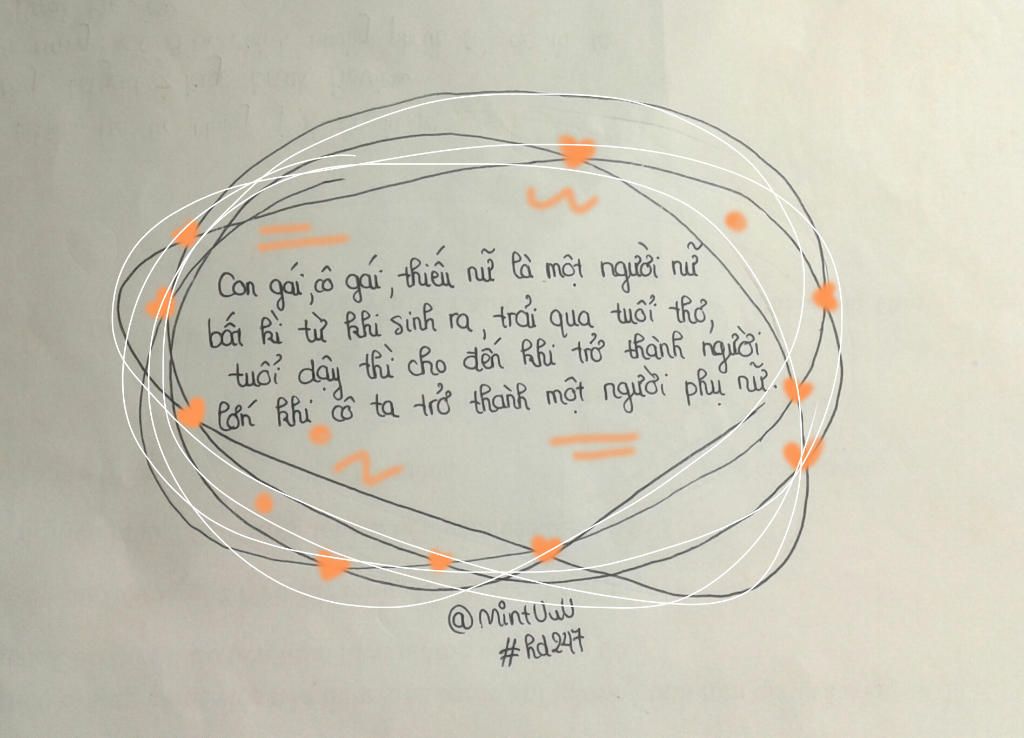 Con gái, cô gái, thiếu nữ là một người nữ
bất kì từ khi sinh ra, trải qua tuổi thơ,
tuổi dậy thì cho đến khi trở thành người
lớn khi cô ta trở thành một người phụ nữ.
@MintUwU
#hd247